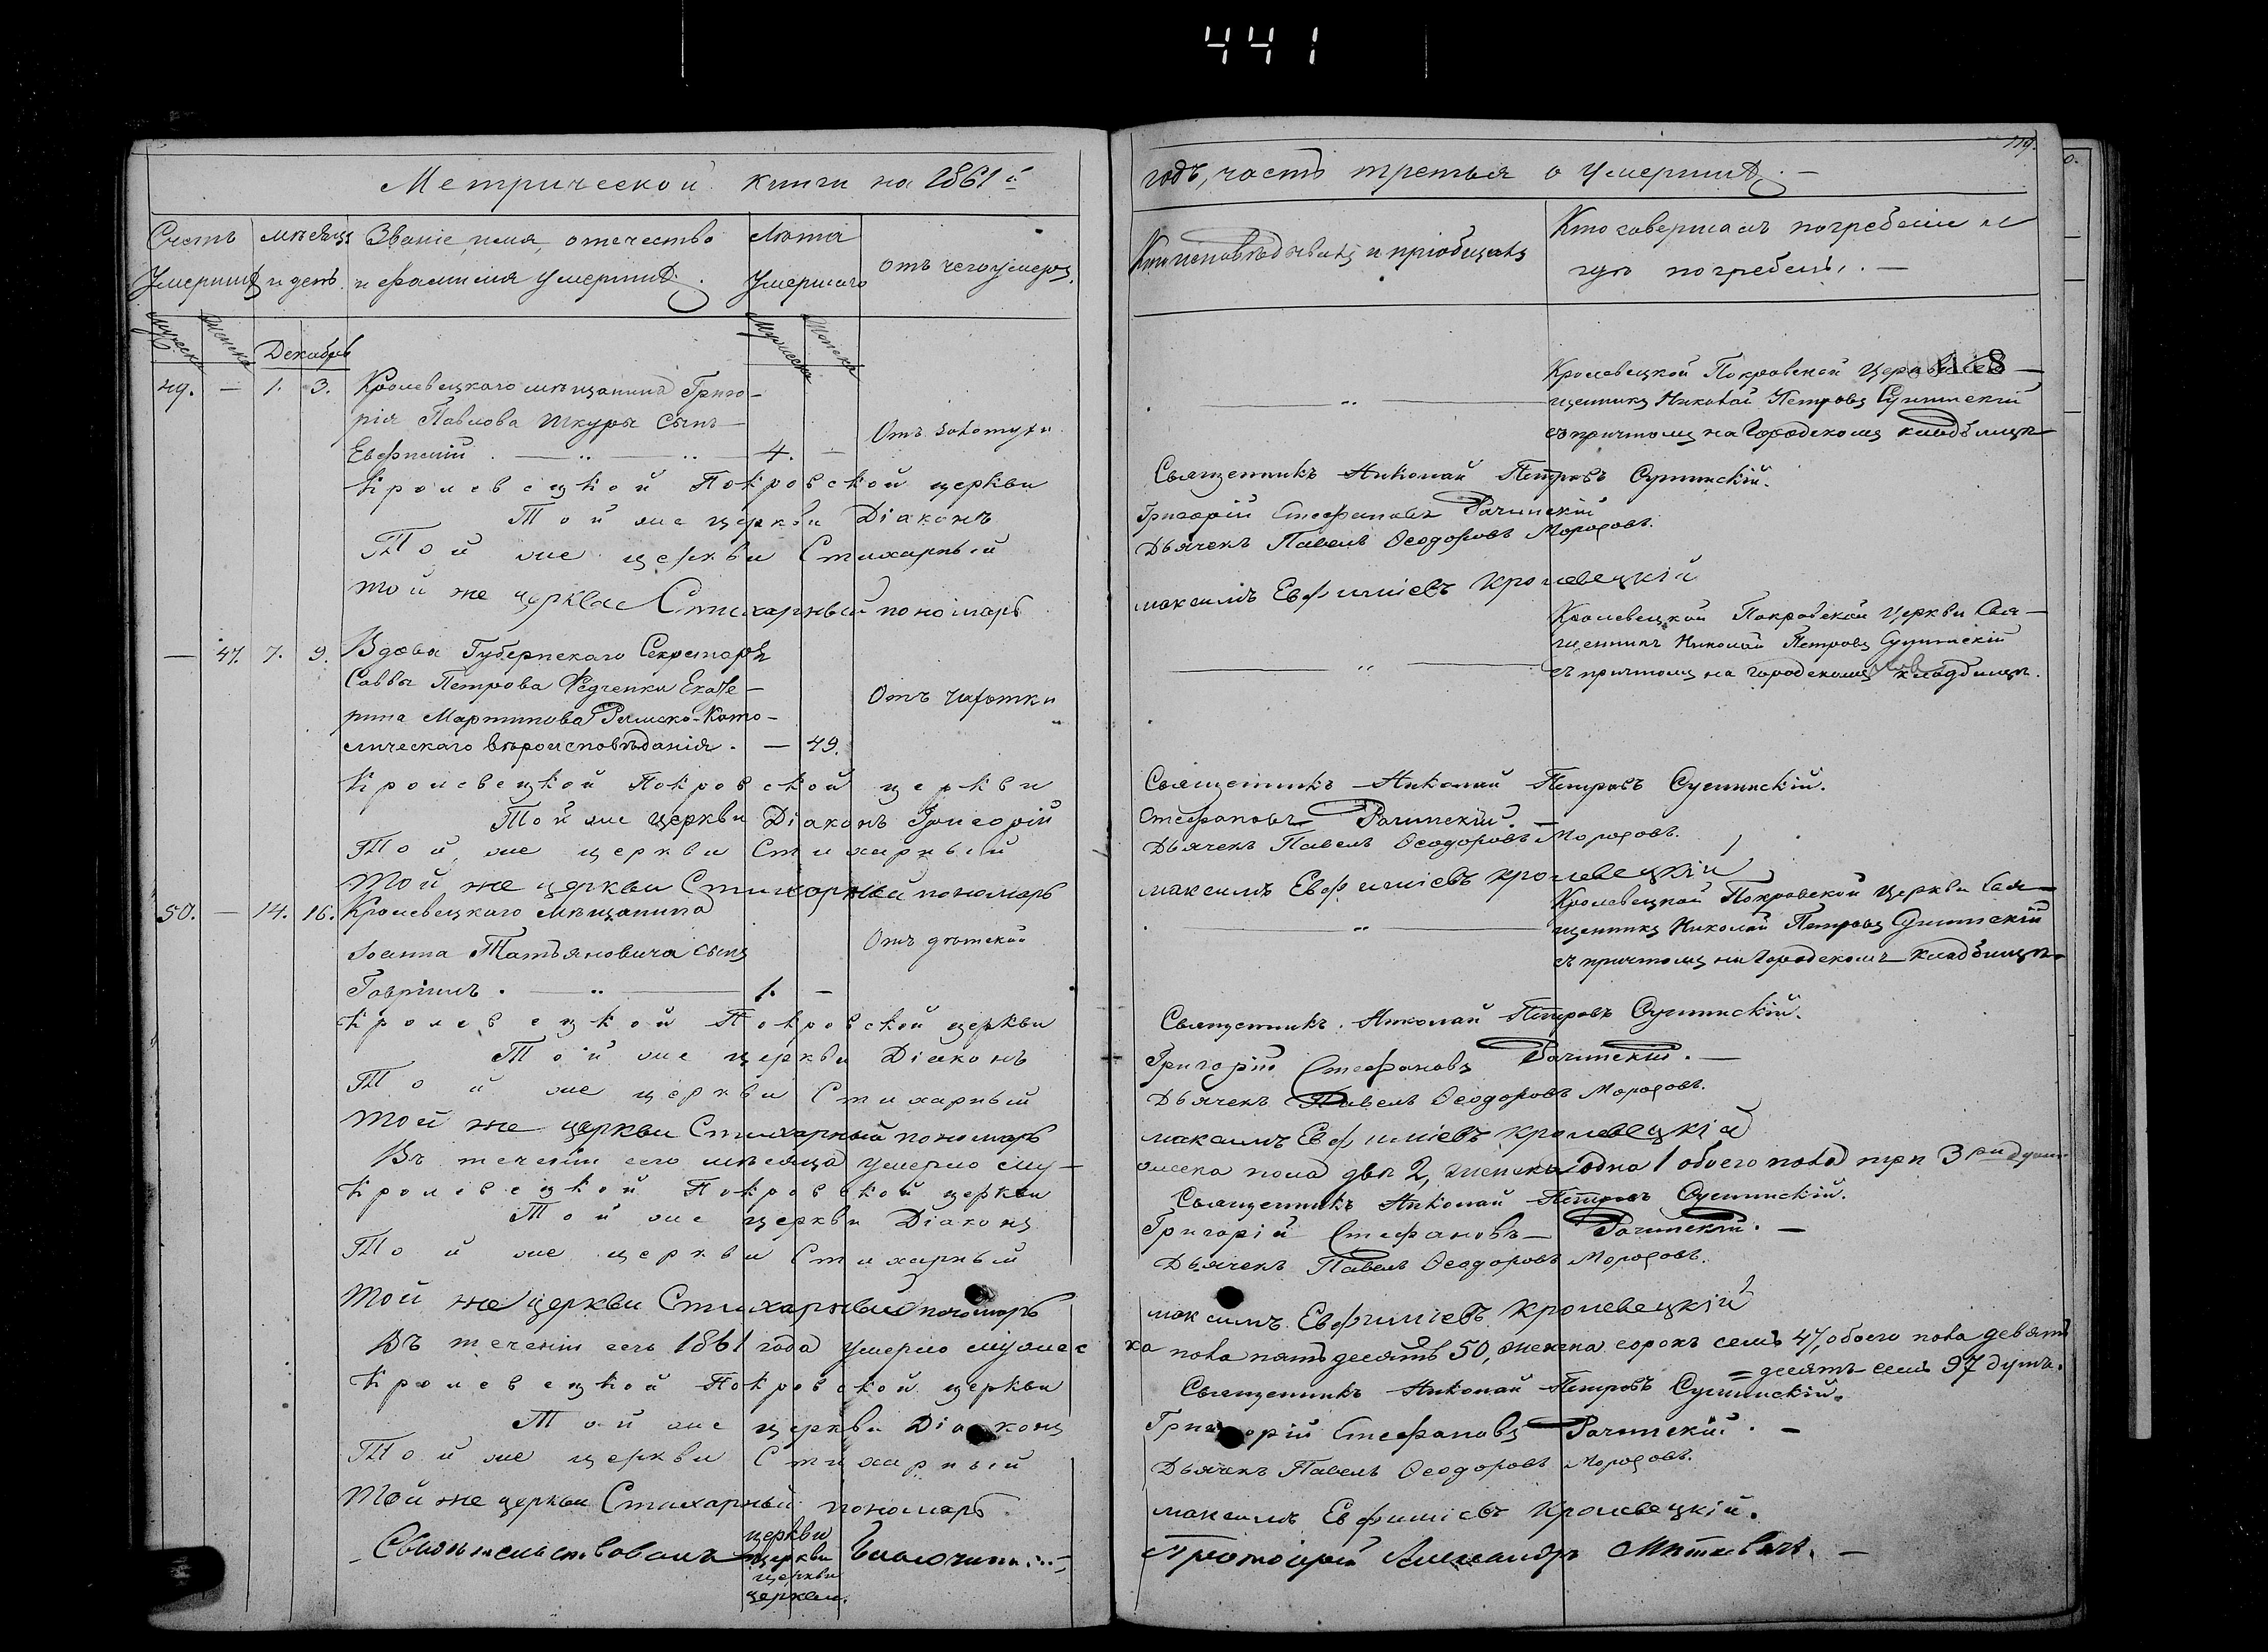 441
119.
Метрической книги на 1861й
годъ, часть третья о умершихъ. —
Счетъ умершихъ
мѣсяцъ и день.
Званіе, имя, отечество и фамилія умершихъ.
Лѣта умершаго
отъ чего умеръ.
Кто исповѣдывалъ и пріобщалъ
Кто совершалъ погребеніе и гдѣ погребены. —
Мужеска
Женска
Декабрь
Мужеска
Женска
118
49. — 1. 3. Кролевецкаго мѣщанина Григо-
рія Павлова Шкуры сынъ
Евфимій. — 4. —
Отъ золотухи
Кролевецкой Покровской Церкви Свя-
щенникъ Николай Петровъ Сушинскій
съ причтомъ на Городскомъ кладбищѣ
Кролевецкой Покровской церкви Священникъ Николай Петровъ Сушинскій.
Той же церкви Діаконъ Григорій Стефановъ Рачинскій
Той же церкви Стихарный Дьячекъ Павелъ Ѳеодоровъ Морозовъ.
Той же церкви Стихарный пономарь максимъ Евфиміевъ Кролевецкій
— 47. 7. 9. Вдова Губернскаго Секретаря
Саввы Петрова Федченки Екате-
рина Мартинова Римско-Като-
лическаго вѣроисповѣданія. — 49.
Отъ чахотки
Кролевецкой Покровской Церкви Свя-
щенникъ Николай Петровъ Сушинскій
съ причтомъ на городскомъ кладбищѣ.
Кролевецкой Покровской церкви Священникъ Николай Петровъ Сушинскій.
Той же церкви Діаконъ Григорій Стефановъ Рачинскій. —
Той же церкви Стихарный Дьячекъ Павелъ Ѳеодоровъ Морозовъ.
Той же церкви Стихарный пономарь максимъ Евфиміевъ Кролевецкій
50. — 14. 16. Кролевецкаго Мѣщанина
Іоанна Татьяновича сынъ
Гавріилъ. — 1. —
Отъ дѣтской
Кролевецкой Покровской Церкви Свя-
щенникъ Николай Петровъ Сушинскій
съ причтомъ на Городскомъ кладбищѣ.
Кролевецкой Покровской церкви Священникъ Николай Петровъ Сушинскій.
Той же церкви Діаконъ Григорій Стефановъ Рачинскій. —
Той же церкви Стихарный Дьячекъ Павелъ Ѳеодоровъ Морозовъ.
Той же церкви Стихарный пономарь максимъ Евфиміевъ Кролевецкій
Въ теченіи сего мѣсяца умерло му-
жеска пола два 2, женска одна 1 обоего пола три 3 ри души
Кролевецкой Покровской церкви Священникъ Николай Петровъ Сушинскій.
Той же церкви Діаконъ Григорій Стефановъ — Рачинскій. —
Той же церкви Стихарный Дьячекъ Павелъ Ѳеодоровъ Морозовъ.
Той же церкви Стихарный пономарь максимъ Евфиміевъ Кролевецкій
Въ теченіи сего 1861 года умерло мужес
ка пола пятьдесять 50, женска сорокъ семь 47, обоего пола девять
= десять семь 97 душъ.
Кролевецкой Покровской церкви Священникъ Николай Петровъ Сушинскій.
Той же церкви Діаконъ Григорій Стефановъ Рачинскій. —
Той же церкви Стихарный Дьячекъ Павелъ Ѳеодоровъ Морозовъ.
Той же церкви Стихарный пономарь максимъ Евфиміевъ Кролевецкій.
церкви
церкви
церкви
церкви.
Свидѣтельствовалъ Протоіерей Александръ